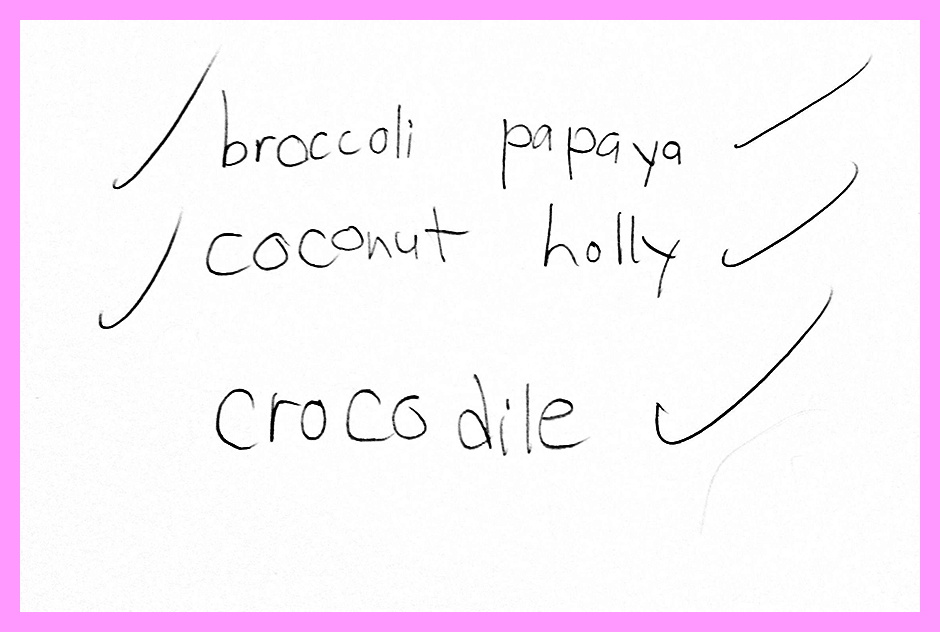 broccoli papaya
coconut holly
crocodile